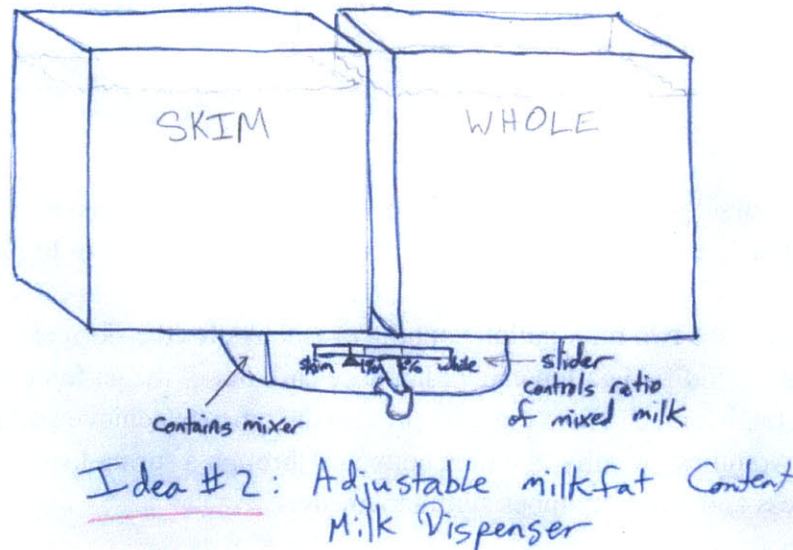 SKIM
WHOLE
skim 1% 2% whole
slider
controls ratio
of mixed milk
contains mixer
Idea #2: Adjustable milkfat Content
Milk Dispenser